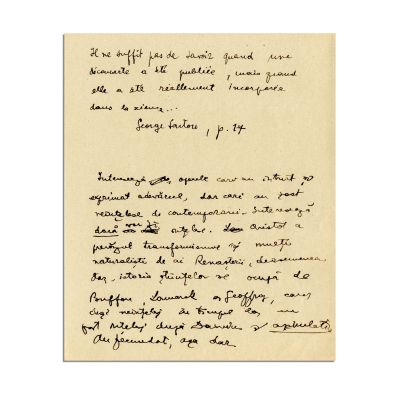 Il ne suffit pas de savoir quand une
découverte a été publiée, mais quand
elle a été réellement incorporée
dans la science...
George Sartore, p. 14
Interesează operele care au intuit și
exprimat adevărul, dar care au fost
neînțelese de contemporani. Interesează
dacă înțelese. Aristot a
transformismul și mulți
naturaliști de ai Renașterii, deasemenea
Dar istoria științelor se ocupă de
Buffon, Lamarck și Geoffroy, care
deși neînțeleși de timpul lor, au
fost înțeleși după Darwin și
Au fecundat, așa dar